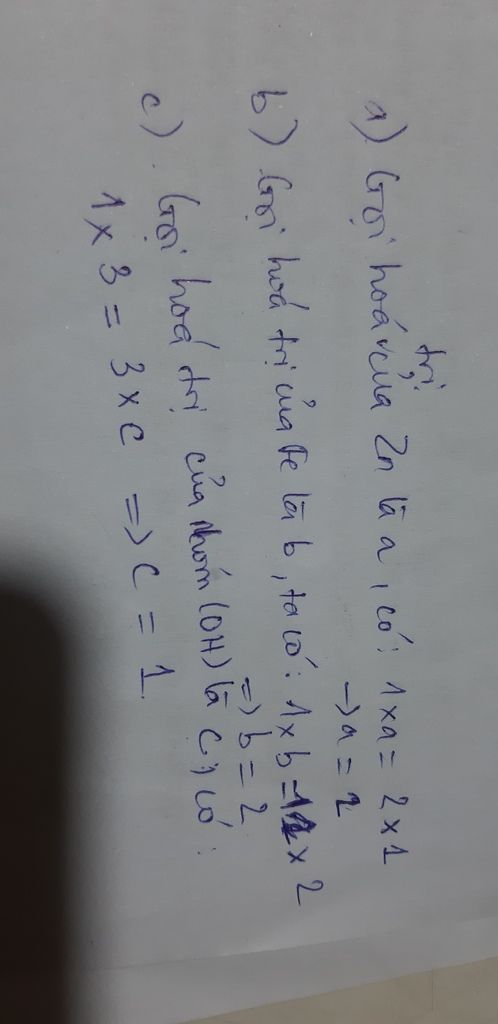 a) Gọi hoá trị của Zn là a, có: 1 x a = 2 x 1
→ a = 2
b) Gọi hoá trị của Fe là b, ta có: 1 x b = 1 x 2
=> b = 2
c) Gọi hoá trị của nhóm (OH) là c, có:
1 x 3 = 3 x c => c = 1